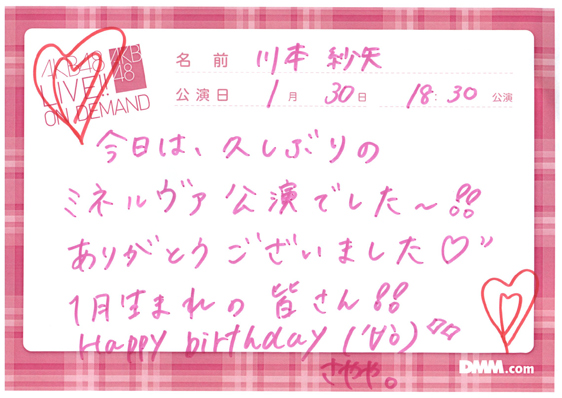 AKB48
LIVE!!
ON DEMAND
AKB
48
名前 川本 紗矢
公演日 1月 30日 18:30 公演
今日は、久しぶりの
ミネルヴァ公演でした〜!!
ありがとうございました♡"
1月生まれの皆さん!!
Happy birthday ('∀`)
さやや。
DMM.com